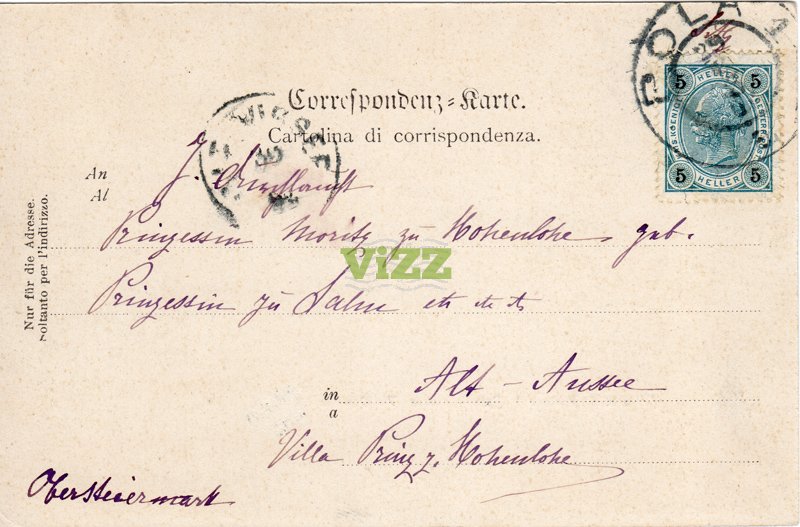 Correspondenz-Karte.
Cartolina di corrispondenza.
POLA
5 HELLER 5
5 HELLER 5
An
Al
J. Durchlaucht
Prinzessin Moritz zu Hohenlohe, geb.
Prinzessin zu Salm etc etc etc
ViZZ
in
a
Alt-Aussee
Villa Prinz z. Hohenlohe
Obersteiermark
Nur für die Adresse.
Soltanto per l'indirizzo.